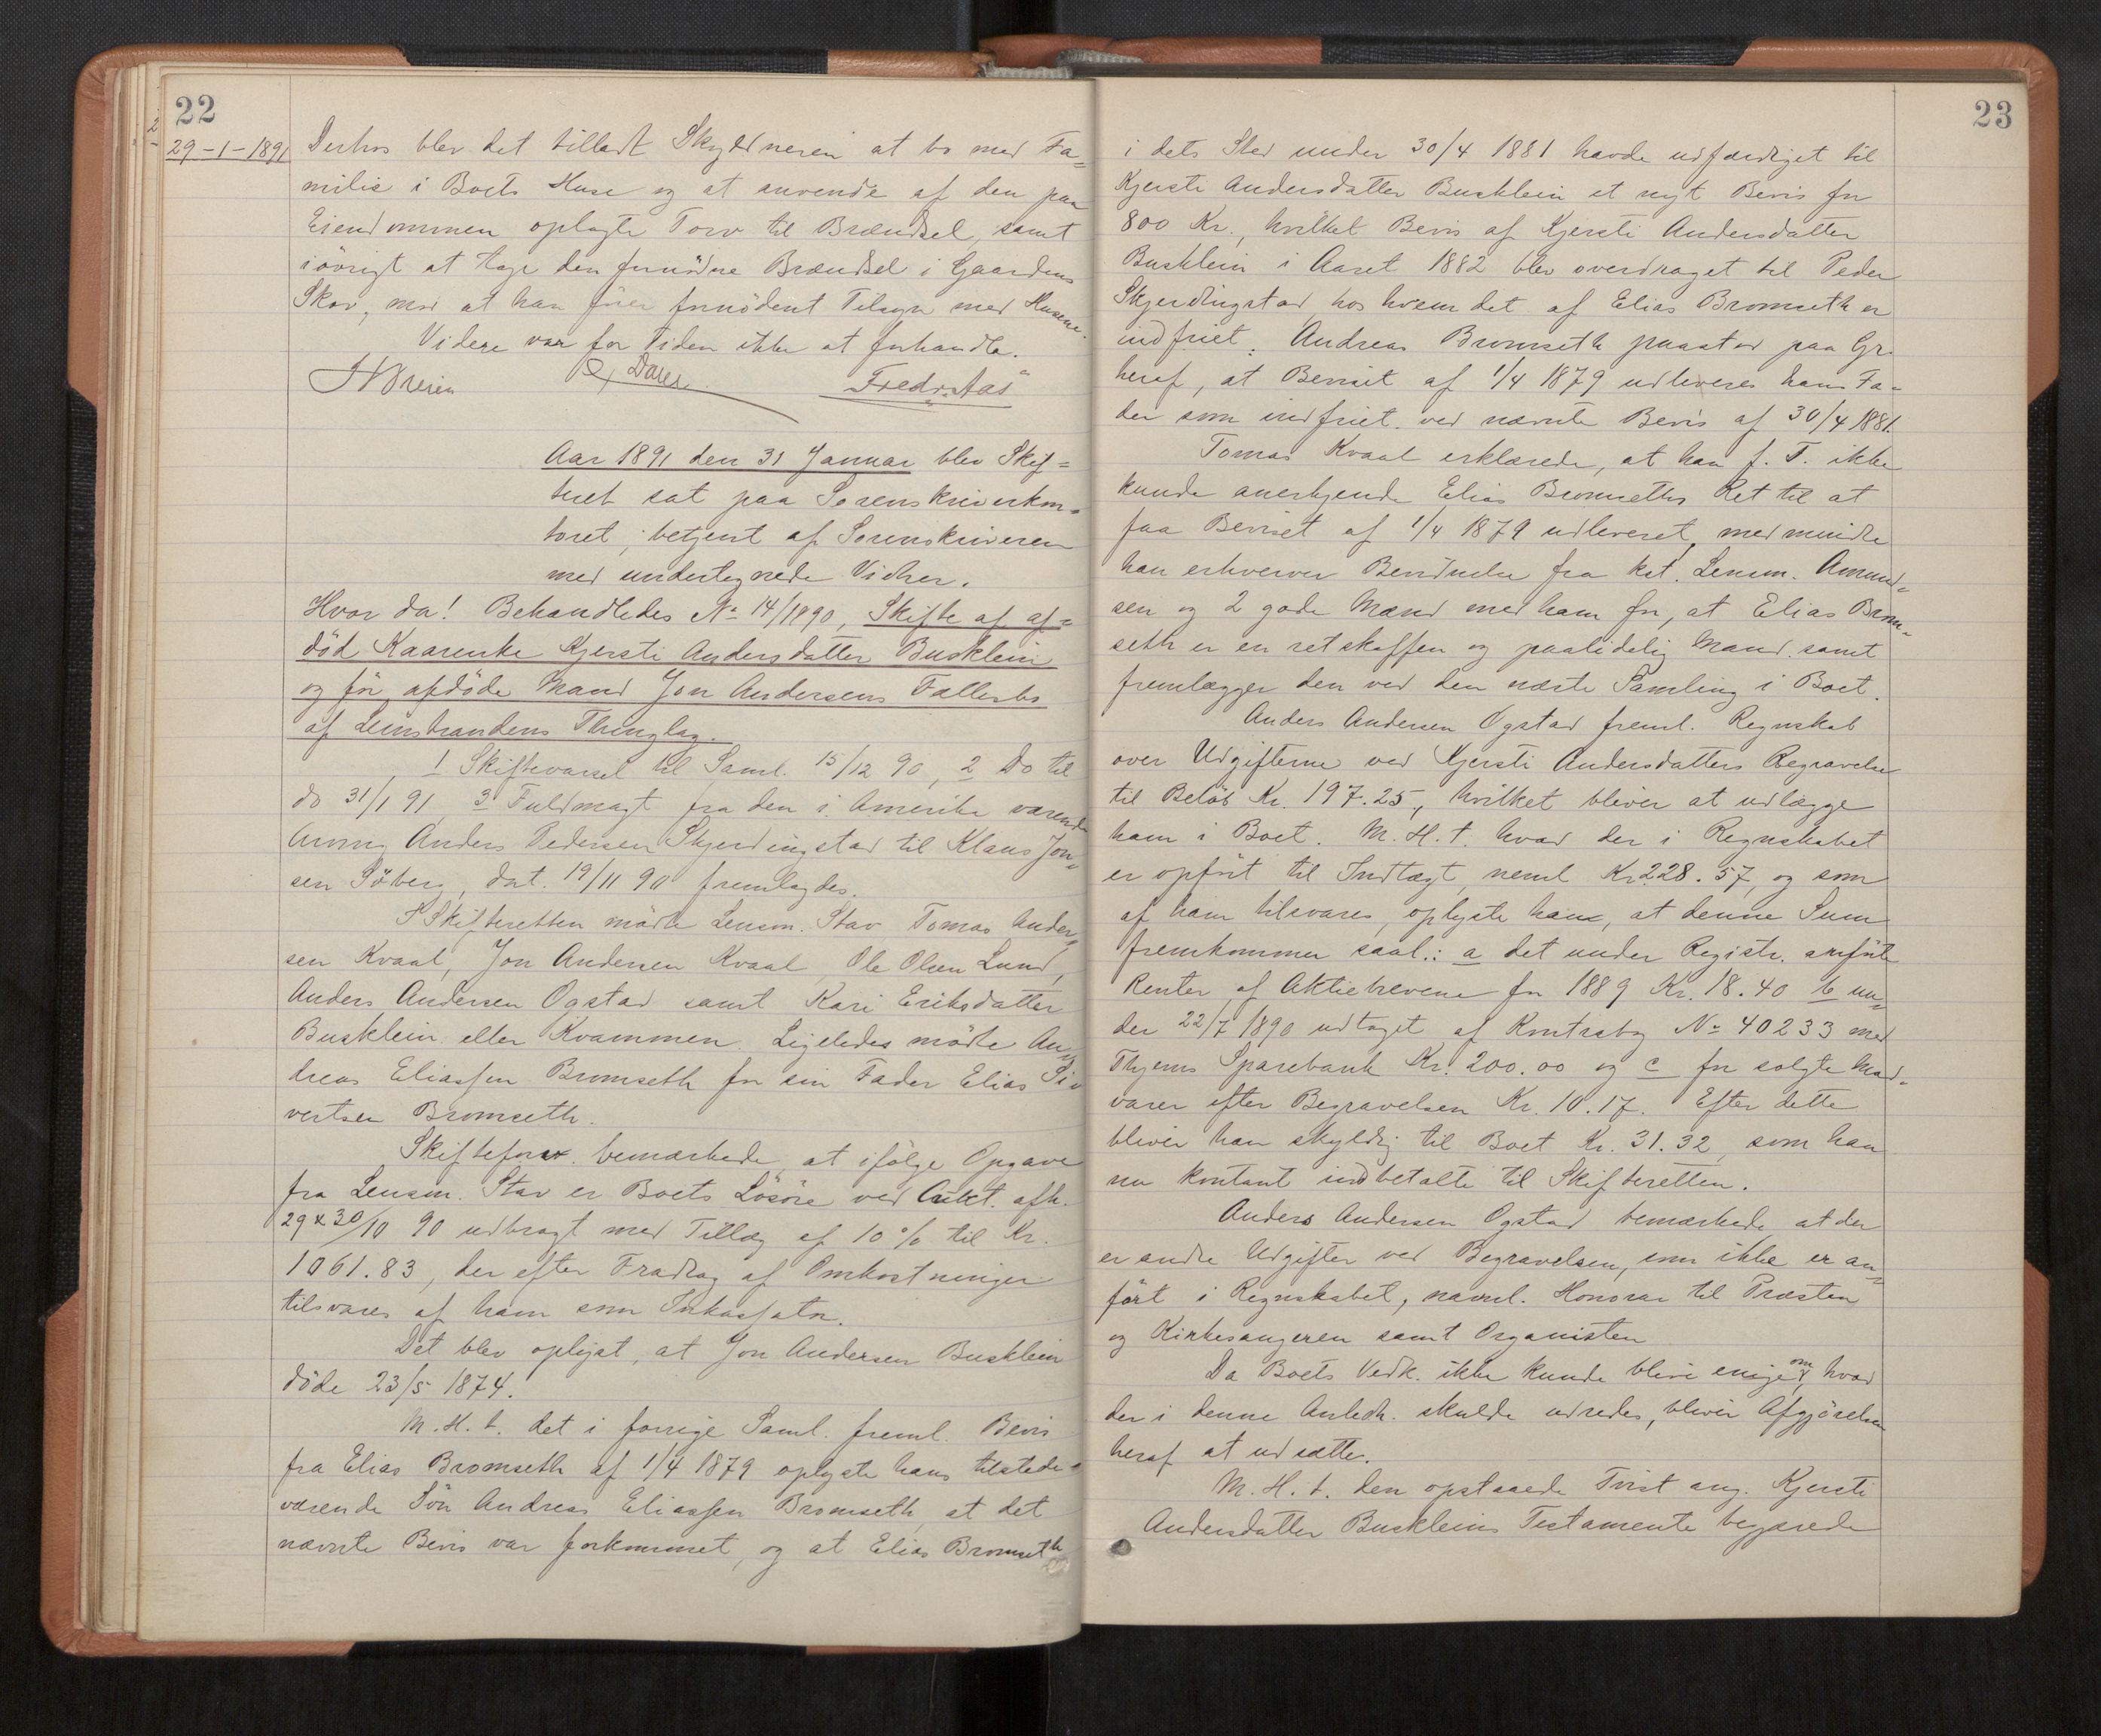 22
29-1-1891
Derhos blev det tilladt Skyldneren at bo med Fa=
milie i Boets Huse og at anvende af den paa
Eiendommen oplagte Torv til Brændsel, samt
iövrigt at tage den fornödne Brændsel i Gaardens
Skov, mod at han förer fornödent Tilsyn med Husene.
Videre var for Tiden ikke at forhandle.
Fredr. Aas
Aar 1891 den 31 Januar blev Skif=
teret sat paa Sorenskriverkon=
toret, betjent af Sorenskriveren
med undertegnede Vidner.
Hvor da! Behandledes No 14/1890, Skifte af af=
död Kaarenke Kjersti Andersdatter Busklein
og för afdöde Mand Jon Andersens Fællesbo
af Leinstrandens Thinglag.
1 Skiftevarsel til Saml. 15/12 90, 2 Do til
do 31/1 91, 3 Fuldmagt fra den i Amerika værende
Arving Anders Pedersen Skjerdingstad til Klaus Jon=
sen Söberg, dat. 19/11 90 fremlagdes.
I Skifteretten mödte Lensm. Stav, Tomas Ander=
sen Kvaal, Jon Andersen Kvaal, Ole Olsen Lund,
Anders Andersen Ogstad samt Kari Eriksdatter
Busklein eller Kvammen. Ligeledes mödte An=
dreas Eliassen Bromseth for sin Fader Elias Si=
vertsen Bromseth.
Skifteforv. bemærkede, at ifölge Opgave
fra Lensm. Stav er Boets Lösöre ved Aukt. afh.
29 & 30/10 90 udbragt med Tillæg af 10 % til Kr.
1061.83, der efter Fradrag af Omkostninger
tilsvares af ham som Inkassator.
Det blev oplyst, at Jon Andersen Busklein
döde 23/5 1874.
M. H. t. det i forrige Saml. freml. Bevis
fra Elias Bromseth af 1/4 1879 oplyste hans tilstede=
værende Sön Andreas Eliassen Bromseth, at det
nævnte Bevis var forkommet, og at Elias Bromseth
23
i dets Sted under 30/4 1881 havde udfærdiget til
Kjersti Andersdatter Busklein et nyt Bevis for
800 Kr., hvilket Bevis af Kjersti Andersdatter
Busklein i Aaret 1882 blev overdraget til Peder
Skjerdingstad, hos hvem det af Elias Bromseth er
indfriet. Andreas Bromseth paastod paa Gr.
heraf, at Beviset af 1/4 1879 udleveres hans Fa=
der som indfriet ved nævnte Bevis af 30/4 1881.
Tomas Kvaal erklærede, at han f. T. ikke
kunde anerkjende Elias Bromseths Ret til at
faa Beviset af 1/4 1879 udleveret, medmindre
han erhverver Bevidnelse fra kst. Lensm. Amund=
sen og 2 gode Mænd med ham for, at Elias Brom=
seth er en retskaffen og paalidelig Mand samt
fremlægger den ved den næste Samling i Boet.
Anders Andersen Ogstad freml. Regnskab
over Udgifterne ved Kjersti Andersdatters Begravelse
til Belöb Kr. 197.25, hvilket bliver at udlægge
ham i Boet. M. H. t. hvad der i Regnskabet
er opfört til Indtægt, neml Kr. 228.57, og som
af ham tilsvares, oplyste han, at denne Sum
fremkommer saal.: a det under Registr. anförte
Renter af Aktiebrevene for 1889 Kr. 18.40 b un=
der 22/7 1890 udtaget af Kontrabog No 40233 med
Thjems Sparebank Kr. 200.00 og c for solgte Mad=
varer efter Begravelsen Kr. 10.17. Efter dette
bliver han skyldig til Boet Kr. 31.32, som han
nu kontant indbetalte til Skifteretten.
Anders Andersen Ogstad bemærkede, at der
er andre Udgifter ved Begravelsen, som ikke er an=
fört i Regnskabet, navnl. Honorar til Præsten
og Kirkesangeren samt Organisten
Da Boets Vedk. ikke kunde blive enige om, hvad
der i denne Anledn. skulde udredes, bliver Afgjörelsen
heraf at udsætte.
M. H. t. den opstaaede Tvist ang. Kjersti
Andersdatter Buskleins Testamente begjærede